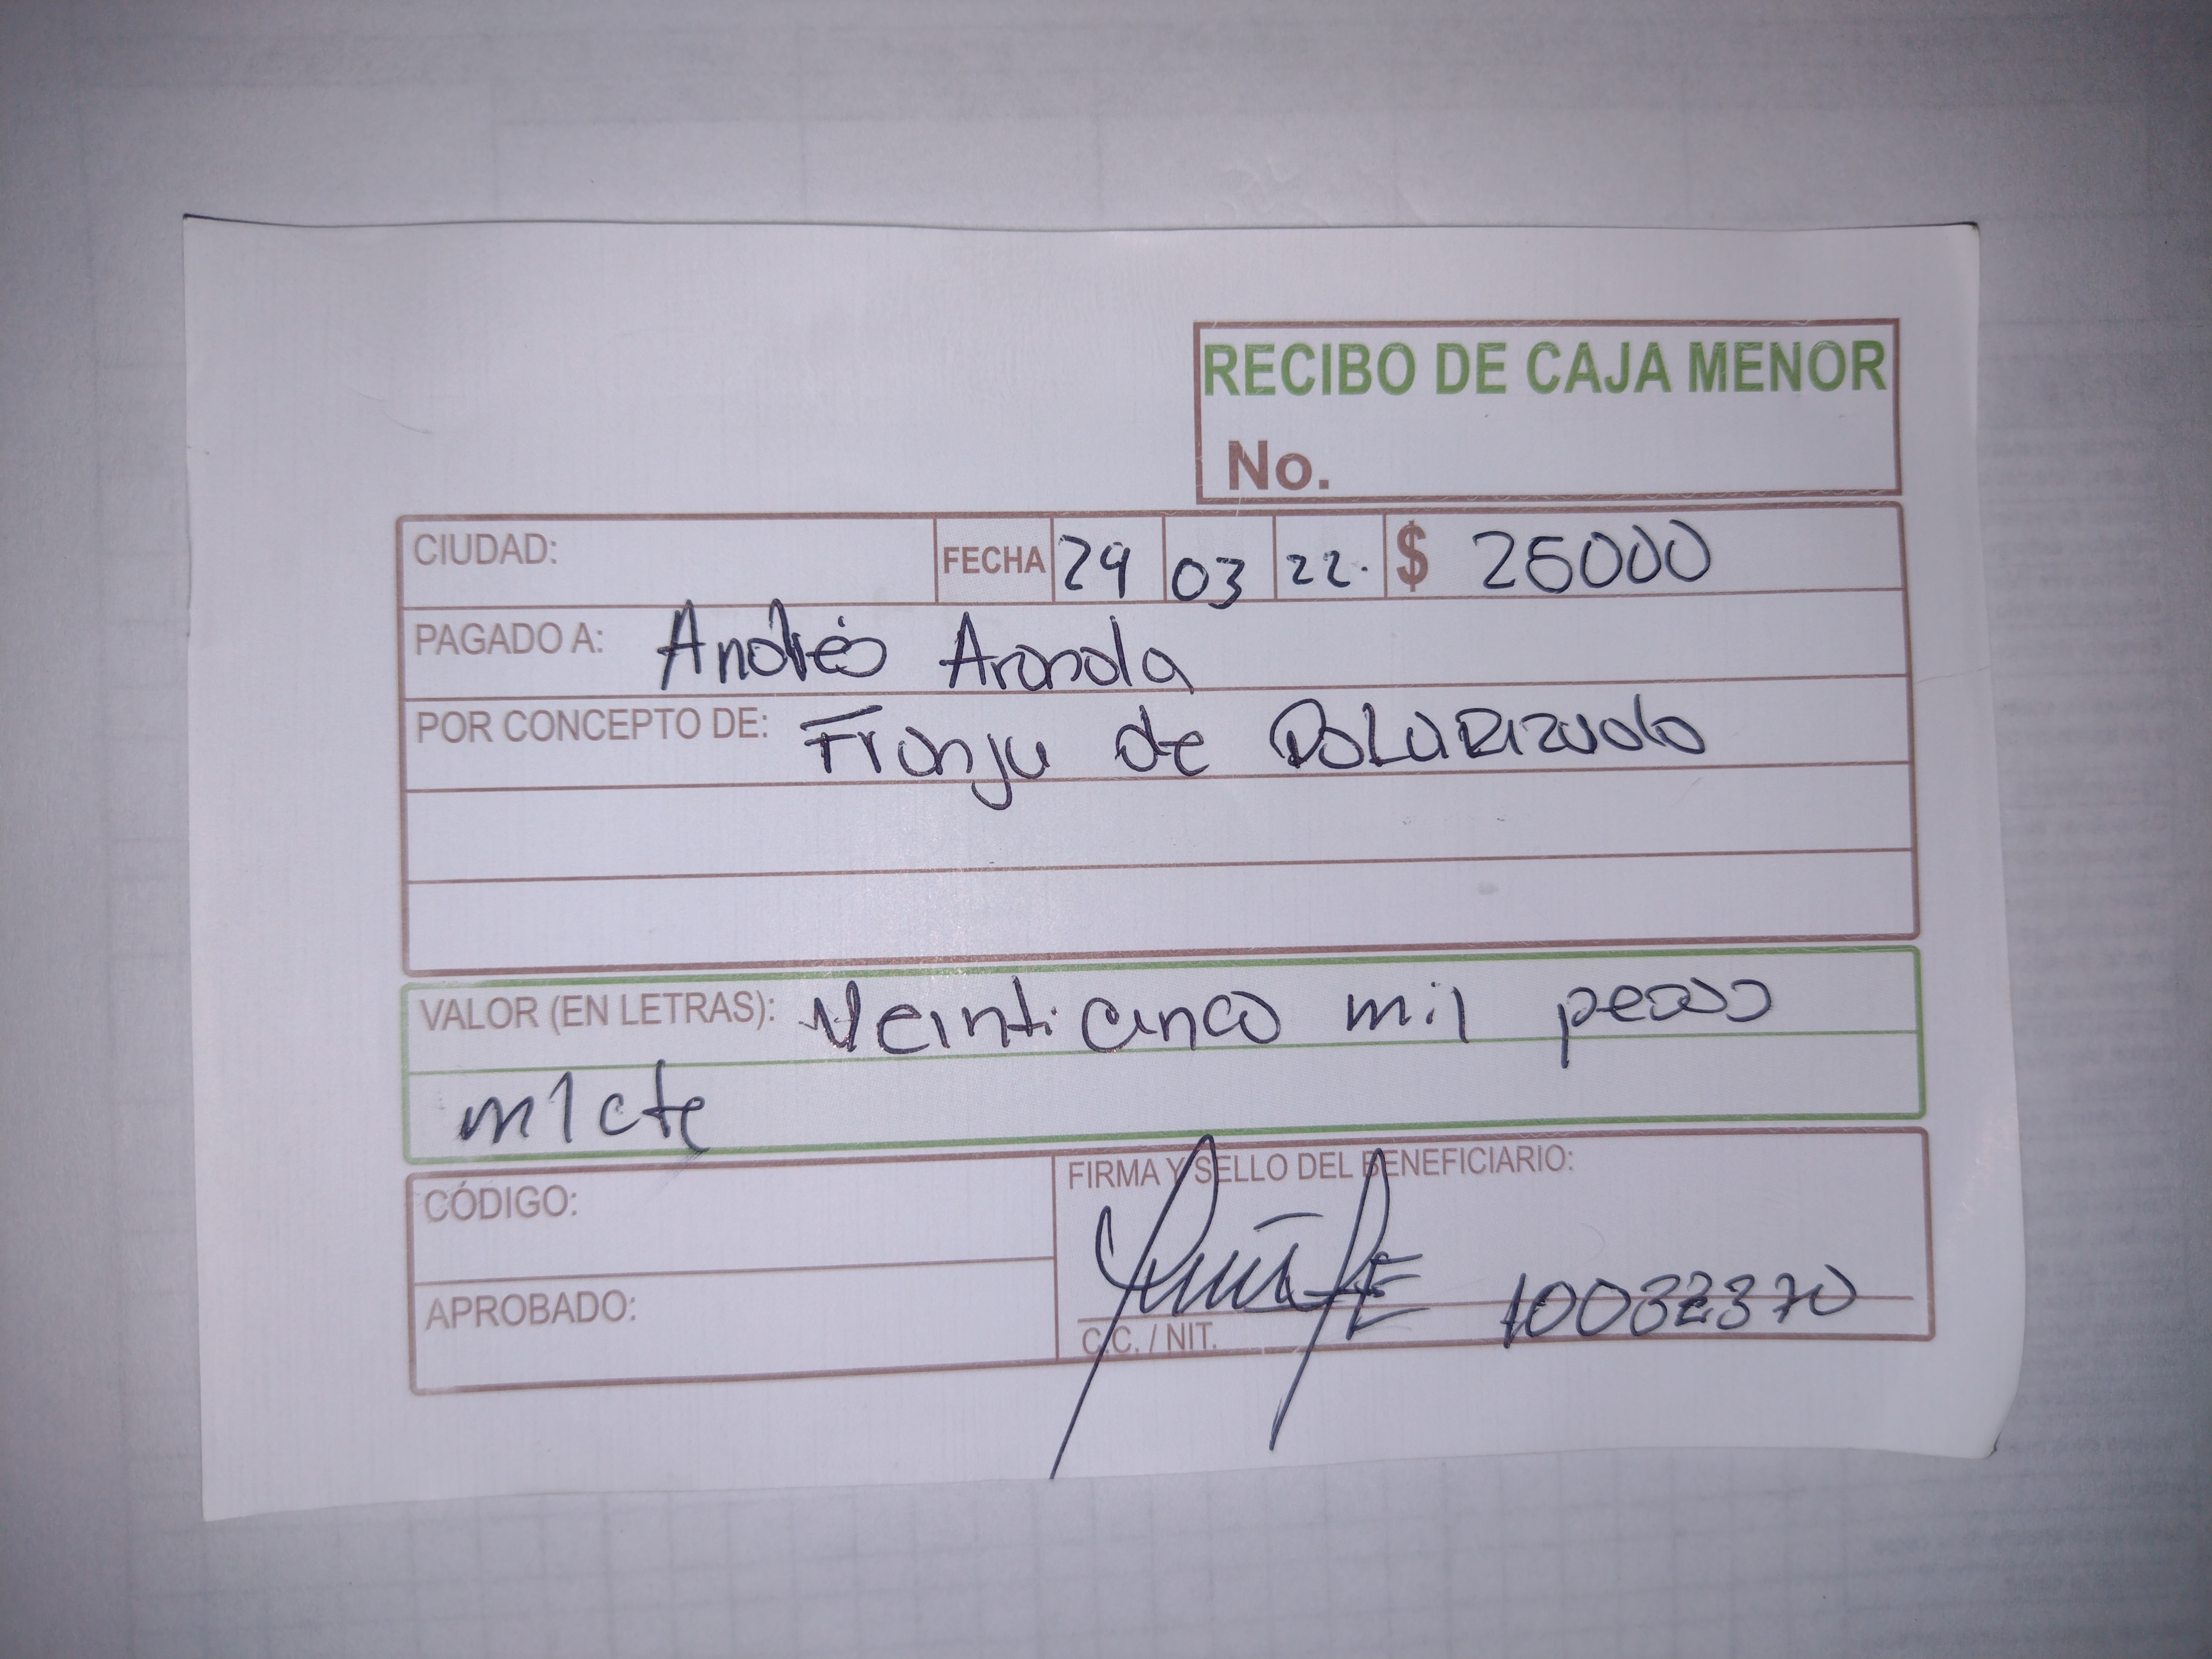 RECIBO DE CAJA MENOR
No.
CIUDAD: FECHA 29 03 22. $ 25000
PAGADO A: Andrés Aranda
POR CONCEPTO DE: Franja de Polarizado
VALOR (EN LETRAS): Veinticinco mil pesos
m/cte
CÓDIGO: FIRMA Y SELLO DEL BENEFICIARIO:
APROBADO: C.C. / NIT. 10032370